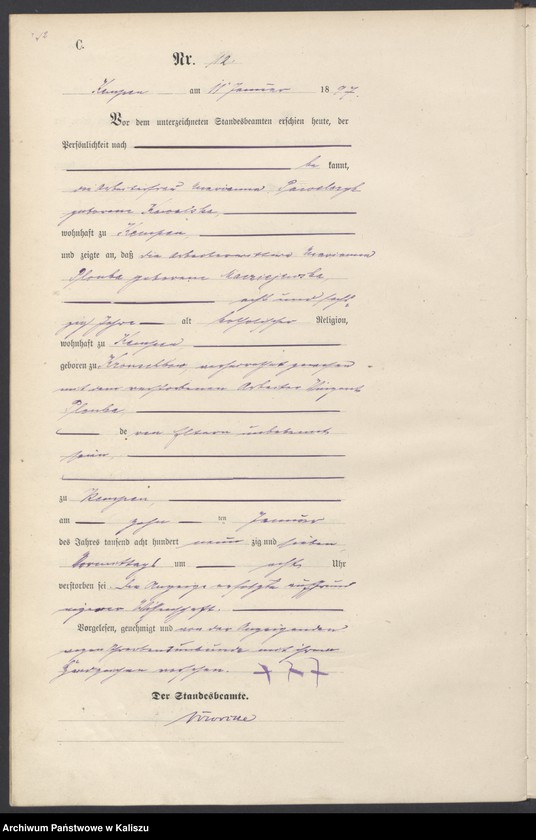 C.
Nr. 12
Kempen am 11 Januar 1897.
Vor dem unterzeichneten Standesbeamten erschien heute, der
Persönlichkeit nach
be kannt,
die Arbeiterfrau Marianna
geborene Kowalska,
wohnhaft zu Kempen,
und zeigte an, daß die Arbeiterwittwe Marianna
geborene
acht und sech-
zig Jahre alt katholischer Religion,
wohnhaft zu Kempen
geboren zu verheirathet gewesen
mit dem verstorbenen Arbeiter
de ren Eltern unbekannt
sein,
zu Kempen,
am zehn ten Januar
des Jahres tausend acht hundert neun zig und sieben,
Vormittags um acht Uhr
verstorben sei. Die Anzeige erfolgte auf Grund
eigener Wissenschaft.
Vorgelesen, genehmigt und von der Anzeigenden
wegen Schreibensunkunde mit ihrem
Handzeichen versehen. +++
Der Standesbeamte.
Archiwum Państwowe w Kaliszu